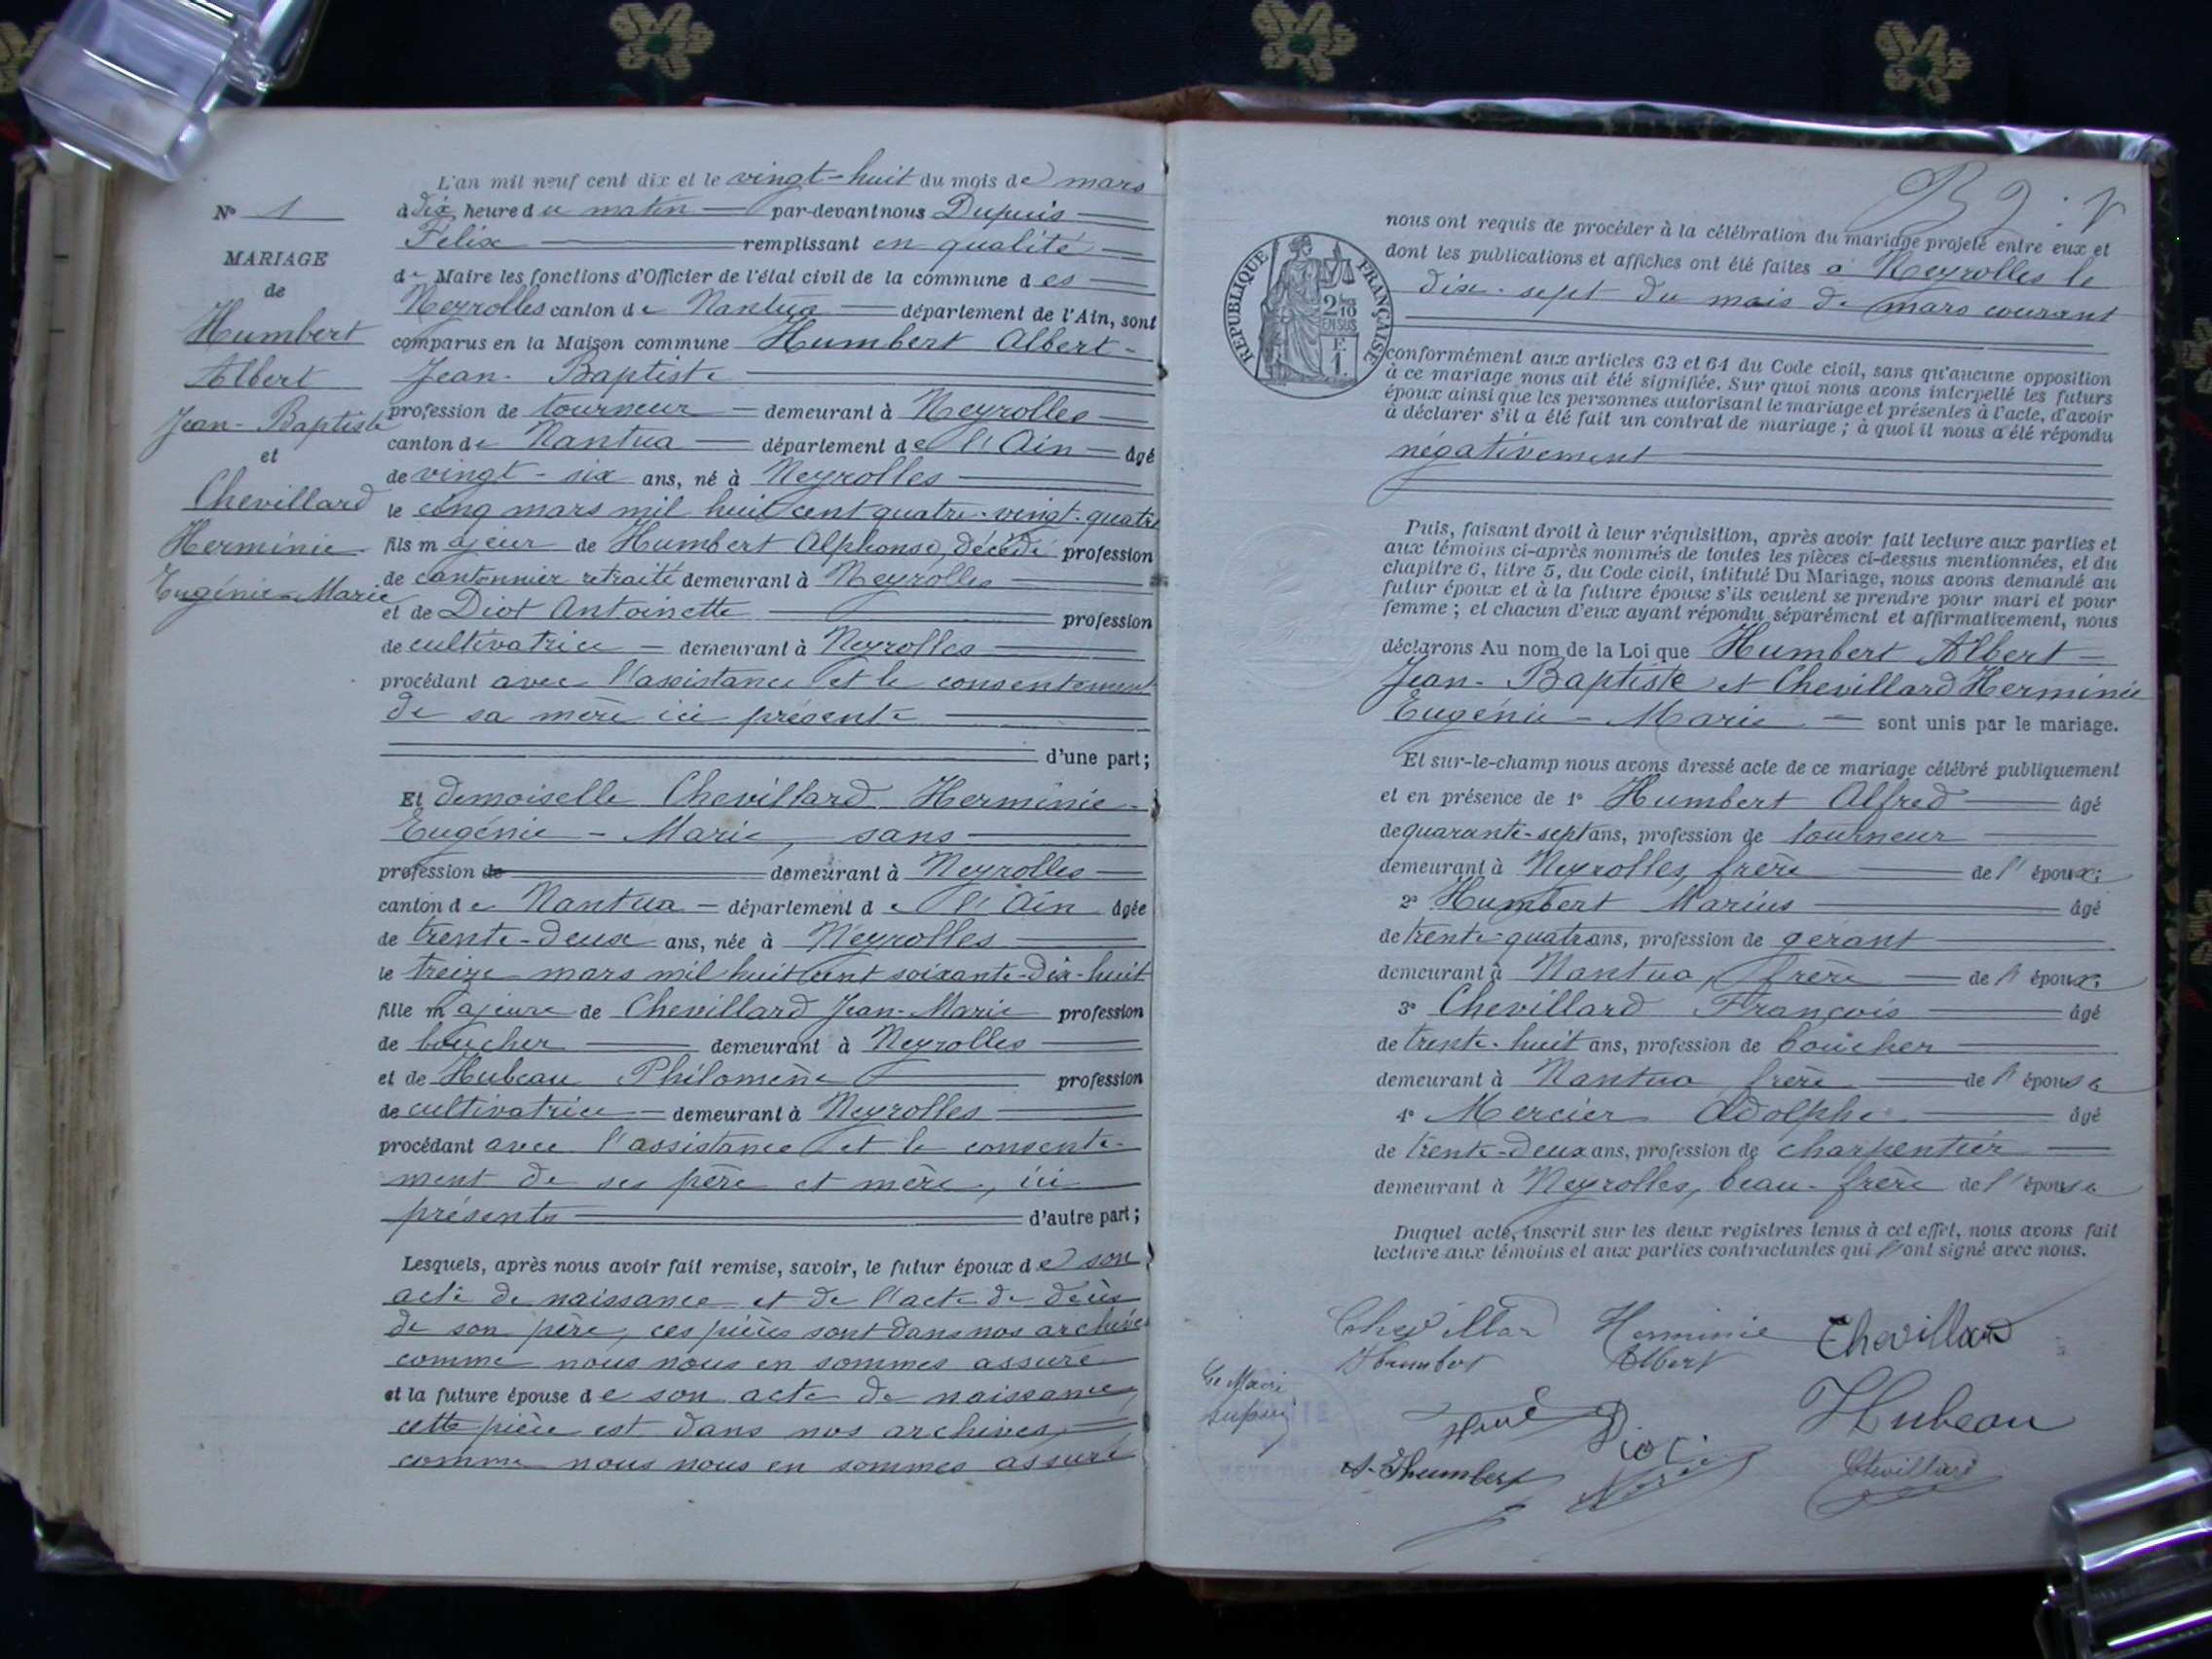 N° 1
MARIAGE
de
Humbert
Albert
Jean-Baptiste
et
Chevillard
Herminie
Eugénie-Marie
L'an mil neuf cent dix et le vingt-huit du mois de mars
à dix heure du matin par-devant nous Dupuis
Félix remplissant en qualité
de Maire les fonctions d'Officier de l'état civil de la commune des
Neyrolles canton de Nantua département de l'Ain, sont
comparus en la Maison commune Humbert Albert-
Jean-Baptiste
profession de tourneur demeurant à Neyrolles
canton de Nantua département de l'Ain âgé
de vingt-six ans, né à Neyrolles
le cinq mars mil huit cent quatre-vingt-quatre
fils majeur de Humbert Alphonse, décédé profession
de cantonnier retraité demeurant à Neyrolles
et de Diot Antoinette profession
de cultivatrice demeurant à Neyrolles
procédant avec l'assistance et le consentement
de sa mère ici présente
d'une part;
Et demoiselle Chevillard Herminie-
Eugénie-Marie, sans
profession de demeurant à Neyrolles
canton de Nantua département de l'Ain âgée
de trente-deux ans, née à Neyrolles
le treize mars mil huit cent soixante-dix-huit
fille majeure de Chevillard Jean-Marie profession
de boucher demeurant à Neyrolles
et de Hubeau Philomène profession
de cultivatrice demeurant à Neyrolles
procédant avec l'assistance et le consente-
ment de ses père et mère, ici
présents d'autre part;
Lesquels, après nous avoir fait remise, savoir, le futur époux de son
acte de naissance et de l'acte de décès
de son père, ces pièces sont dans nos archives
comme nous nous en sommes assuré
et la future épouse de son acte de naissance,
cette pièce est dans nos archives,
comme nous nous en sommes assuré
RÉPUBLIQUE FRANÇAISE
2/10
EN SUS
F.
1.
nous ont requis de procéder à la célébration du mariage projeté entre eux et
dont les publications et affiches ont été faites à Neyrolles le
dix-sept du mois de mars courant
conformément aux articles 63 et 64 du Code civil, sans qu'aucune opposition
à ce mariage nous ait été signifiée. Sur quoi nous avons interpellé les futurs
époux ainsi que les personnes autorisant le mariage et présentes à l'acte, d'avoir
à déclarer s'il a été fait un contrat de mariage; à quoi il nous a été répondu
négativement
Puis, faisant droit à leur réquisition, après avoir fait lecture aux parties et
aux témoins ci-après nommés de toutes les pièces ci-dessus mentionnées, et du
chapitre 6, titre 5, du Code civil, intitulé Du Mariage, nous avons demandé au
futur époux et à la future épouse s'ils veulent se prendre pour mari et pour
femme; et chacun d'eux ayant répondu séparément et affirmativement, nous
déclarons Au nom de la Loi que Humbert Albert-
Jean-Baptiste et Chevillard Herminie
Eugénie-Marie sont unis par le mariage.
Et sur-le-champ nous avons dressé acte de ce mariage célébré publiquement
et en présence de 1° Humbert Alfred âgé
de quarante-sept ans, profession de tourneur
demeurant à Neyrolles, frère de l'époux;
2° Humbert Marius âgé
de trente-quatre ans, profession de gérant
demeurant à Nantua, frère de l'époux;
3° Chevillard François âgé
de trente-huit ans, profession de boucher
demeurant à Nantua frère de l'épouse
4° Mercier Adolphe âgé
de trente-deux ans, profession de charpentier
demeurant à Neyrolles, beau-frère de l'épouse
Duquel acte, inscrit sur les deux registres tenus à cet effet, nous avons fait
lecture aux témoins et aux parties contractantes qui l'ont signé avec nous.
Chevillard Herminie Chevillard
Humbert Albert
Le Maire
Dupuis
Diot
Hubeau
A. Humbert
Chevillard